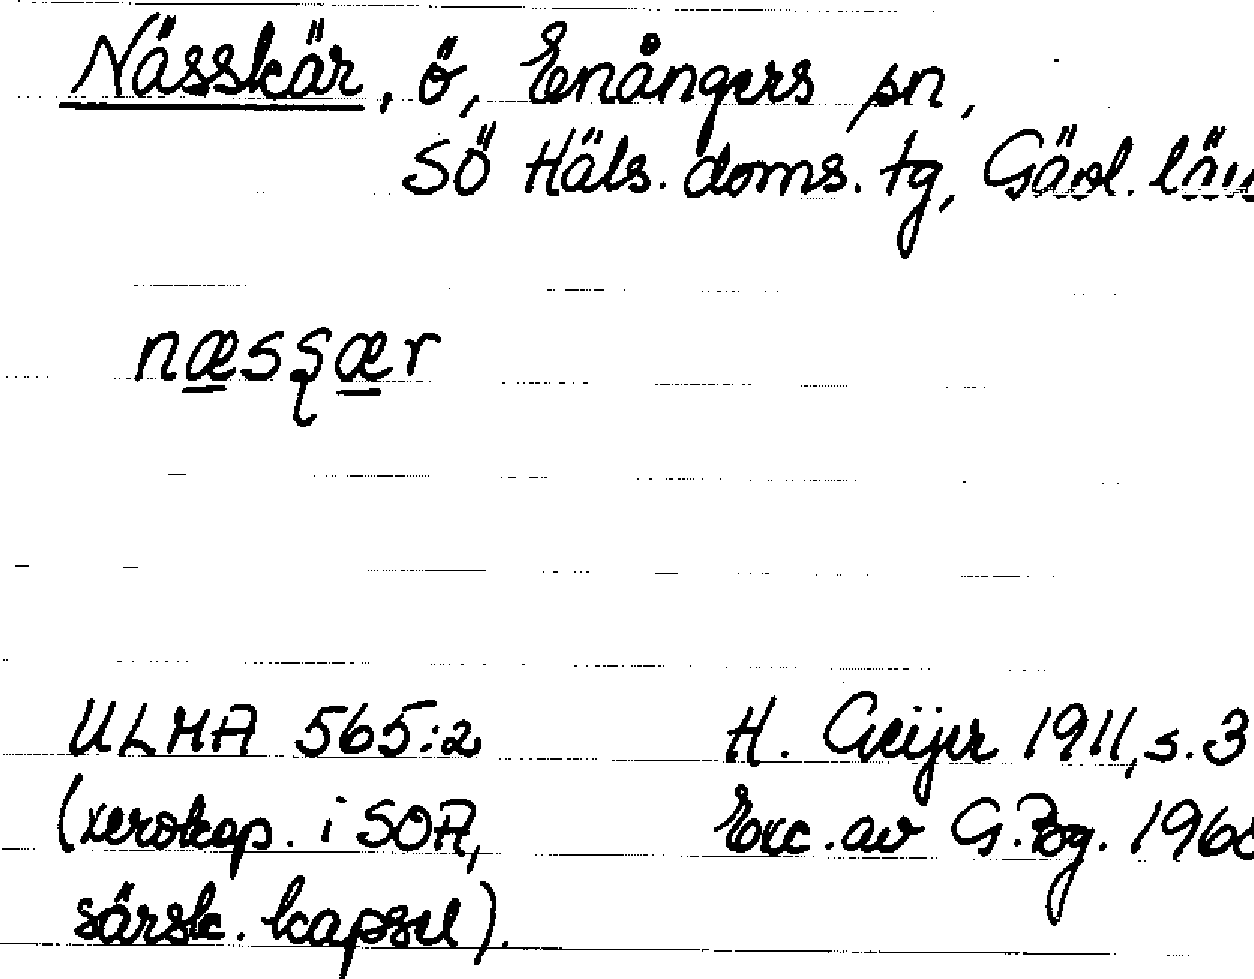 Nässkär, ö, Enångers sn,
SÖ Häls. doms. tg, Gävl. län
næsʂær
ULMA 565:2
(xerokop. i SOA,
särsk. kapsel).
H. Geijer 1911, s. 3
Exc. av G. Bg.